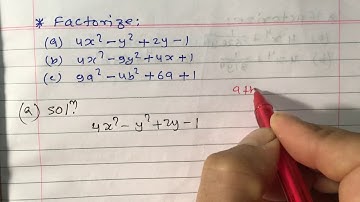 * Factorize:
(a) 4x² - y² + 2y - 1
(b) 4x² - 9y² + 4x + 1
(c) 9a² - 4b² + 6a + 1
a+b
(a) solⁿ:
4x² - y² + 2y - 1